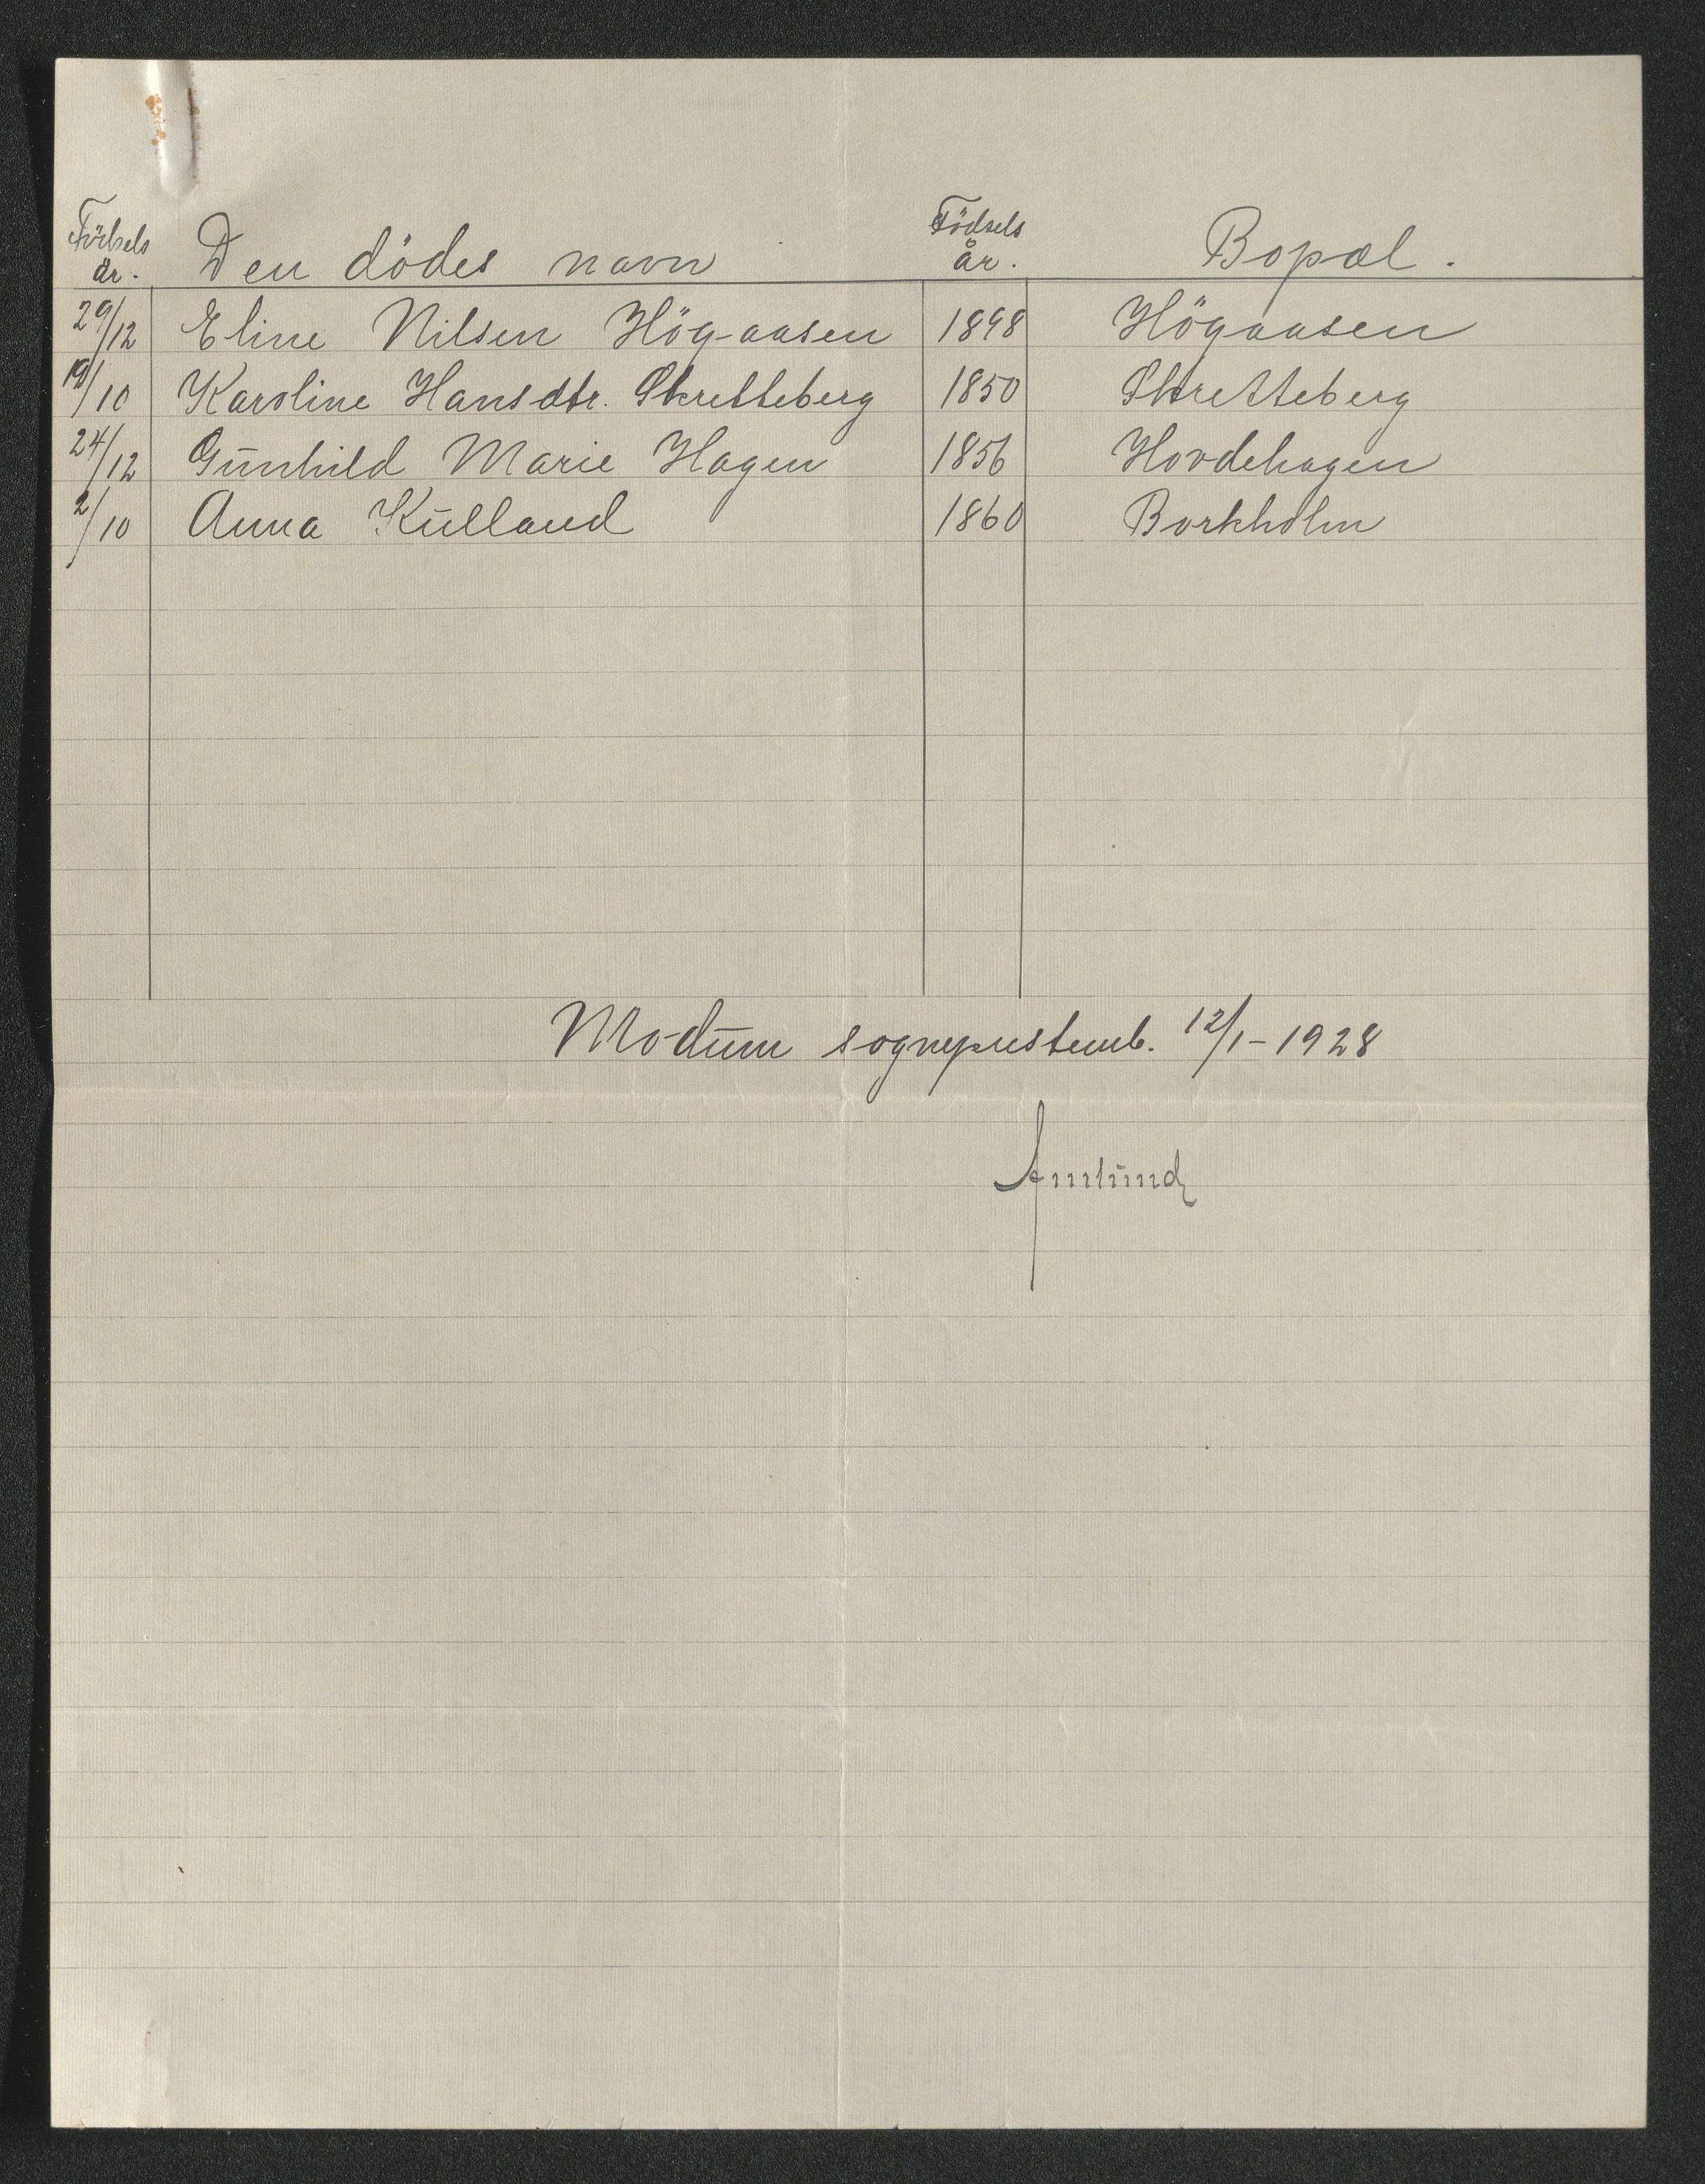 Födsels år. Den dödes navn Födsels år. Bopæl.
29/12 Eline Nilsen Högaasen 1898 Högaasen
19/10 Karoline Hansdtr. Skretteberg 1850 Skretteberg
24/12 Gunhild Marie Hagen 1856 Hovdehagen
2/10 Anna Kulland 1860 Borkholm
Modum sogneprestemb. 12/1-1928